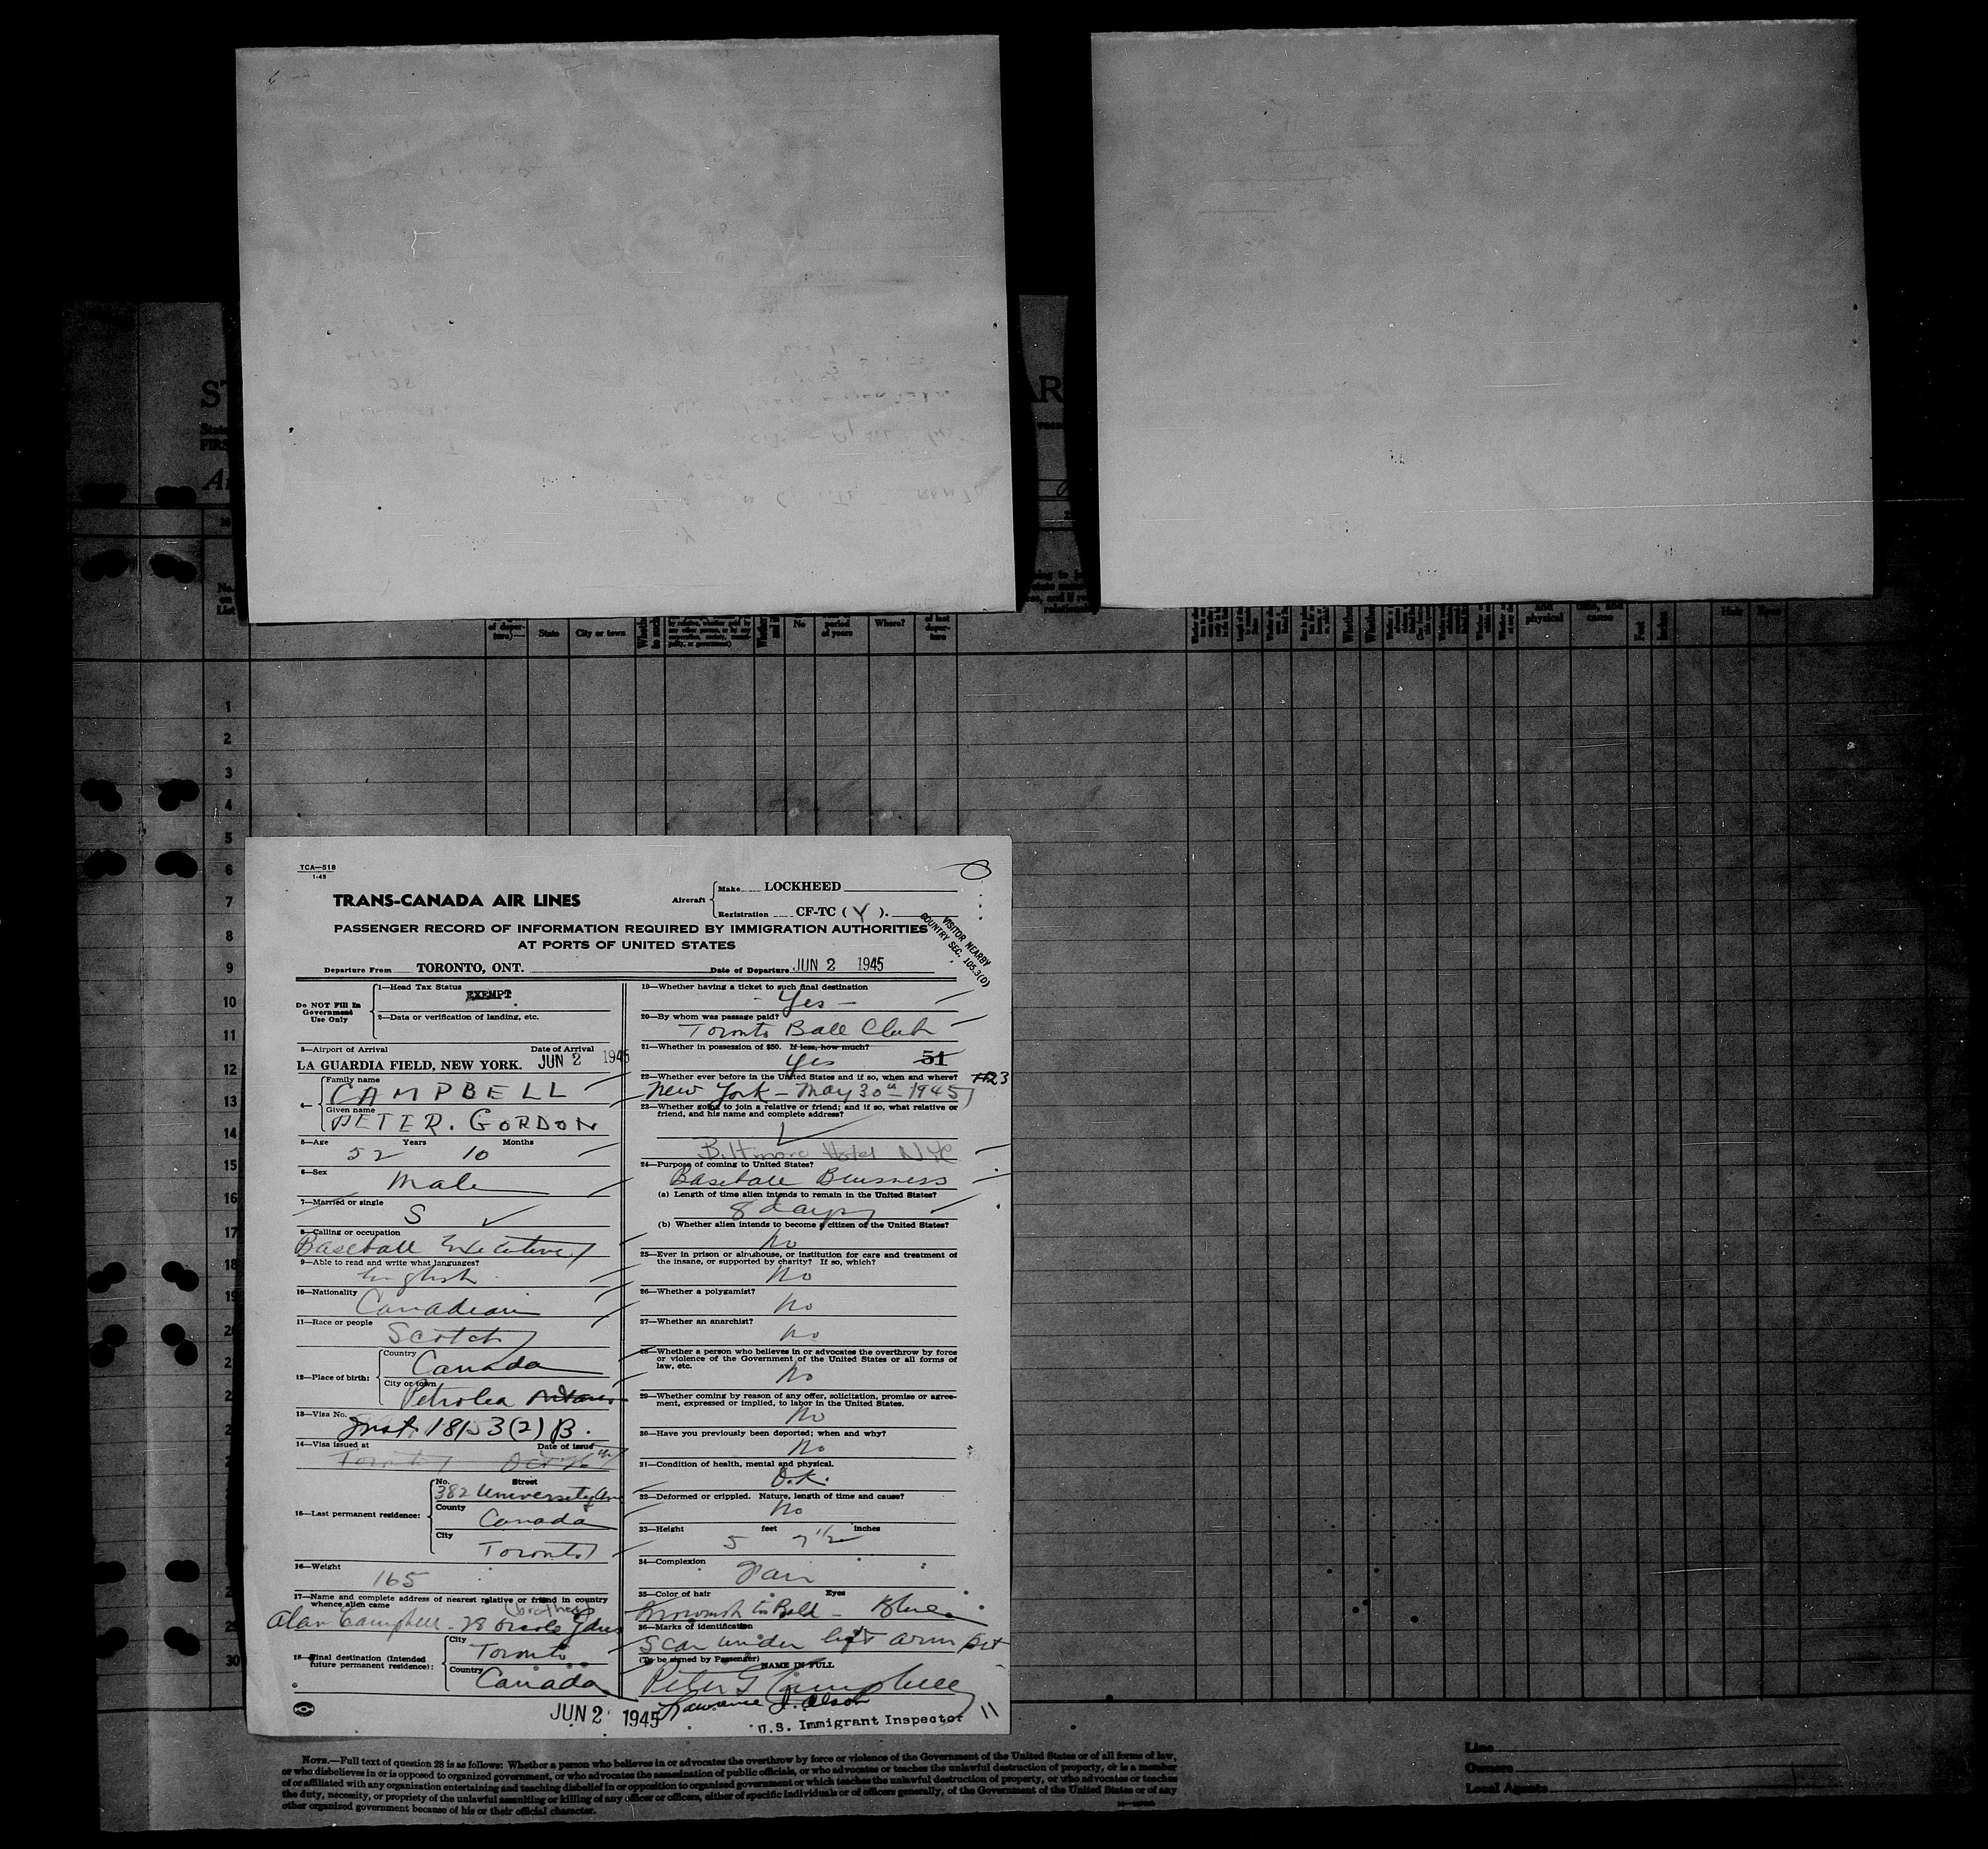 TCA—518
1-45
TRANS-CANADA AIR LINES
Aircraft
Make LOCKHEED
Registration CF-TC ( Y ).
VISITOR NEARBY
COUNTRY SEC. 105.3(D)
PASSENGER RECORD OF INFORMATION REQUIRED BY IMMIGRATION AUTHORITIES
AT PORTS OF UNITED STATES
Departure From TORONTO, ONT. Date of Departure JUN 2 1945
Do NOT Fill In
Government
Use Only
1—Head Tax Status
EXEMPT
2—Data or verification of landing, etc.
3—Airport of Arrival Date of Arrival
LA GUARDIA FIELD, NEW YORK. JUN 2 1945
4—
Family name
CAMPBELL
Given name
PETER. GORDON
5—Age Years Months
52 10
6—Sex
Male
7—Married or single
S
8—Calling or occupation
Baseball Executive
9—Able to read and write what languages?
English
10—Nationality
Canadian
11—Race or people
Scotch
12—Place of birth:
Country
Canada
City or town
Petrolea Ontario
13—Visa No.
Inst. 1815 3(2) B.
14—Visa issued at Date of issue
Toronto Oct 26th
15—Last permanent residence:
No. Street
382 University Ave
County
Canada
City
Toronto
16—Weight
165
17—Name and complete address of nearest relative or friend in country
whence alien came
(brother)
Alan Campbell - 28 Oriole Gdns
18—Final destination (Intended
future permanent residence):
City
Toronto
Country
Canada
JUN 2 1945
19—Whether having a ticket to such final destination
- Yes -
20—By whom was passage paid?
Toronto Ball Club
21—Whether in possession of $50. If less, how much?
Yes 51
22—Whether ever before in the United States and if so, when and where?
New York - May 30th - 1945
23—Whether going to join a relative or friend; and if so, what relative or
friend, and his name and complete address?
Biltmore Hotel NYC
24—Purpose of coming to United States?
Baseball Business
(a) Length of time alien intends to remain in the United States?
8 days
(b) Whether alien intends to become a citizen of the United States?
No
25—Ever in prison or almshouse, or institution for care and treatment of
the insane, or supported by charity? If so, which?
No
26—Whether a polygamist?
No
27—Whether an anarchist?
No
28—Whether a person who believes in or advocates the overthrow by force
or violence of the Government of the United States or all forms of
law, etc.
No
29—Whether coming by reason of any offer, solicitation, promise or agree-
ment, expressed or implied, to labor in the United States.
No
30—Have you previously been deported; when and why?
No
31—Condition of health, mental and physical.
O.K.
32—Deformed or crippled. Nature, length of time and cause?
No
33—Height feet inches
5 7 1/2
34—Complexion
Fair
35—Color of hair Eyes
Brownish to Bald - Blue
36—Marks of identification
Scar under left arm pit
(To be signed by Passenger) NAME IN FULL
Peter G Campbell
Lawrence J. Olson
U.S. Immigrant Inspector
No.
List
State City or town
No
period
of years
Where?
and
physical
time, and
cause
Feet
Inches
Hair Eyes
1
2
3
4
5
6
7
8
9
10
11
12
13
14
15
16
17
18
30
NOTE.—Full text of question 28 is as follows: Whether a person who believes in or advocates the overthrow by force or violence of the Government of the United States or of all forms of law,
or who disbelieves in or is opposed to organized government, or who advocates the assassination of public officials, or who advocates or teaches the unlawful destruction of property, or is a member
of or affiliated with any organization entertaining and teaching disbelief in or opposition to organized government or which teaches the unlawful destruction of property, or who advocates or teaches
the duty, necessity, or propriety of the unlawful assaulting or killing of any officer or officers, either of specific individuals or of officers generally, of the Government of the United States or of any
other organized government because of his or their official character.
Line
Owners
Local Agents